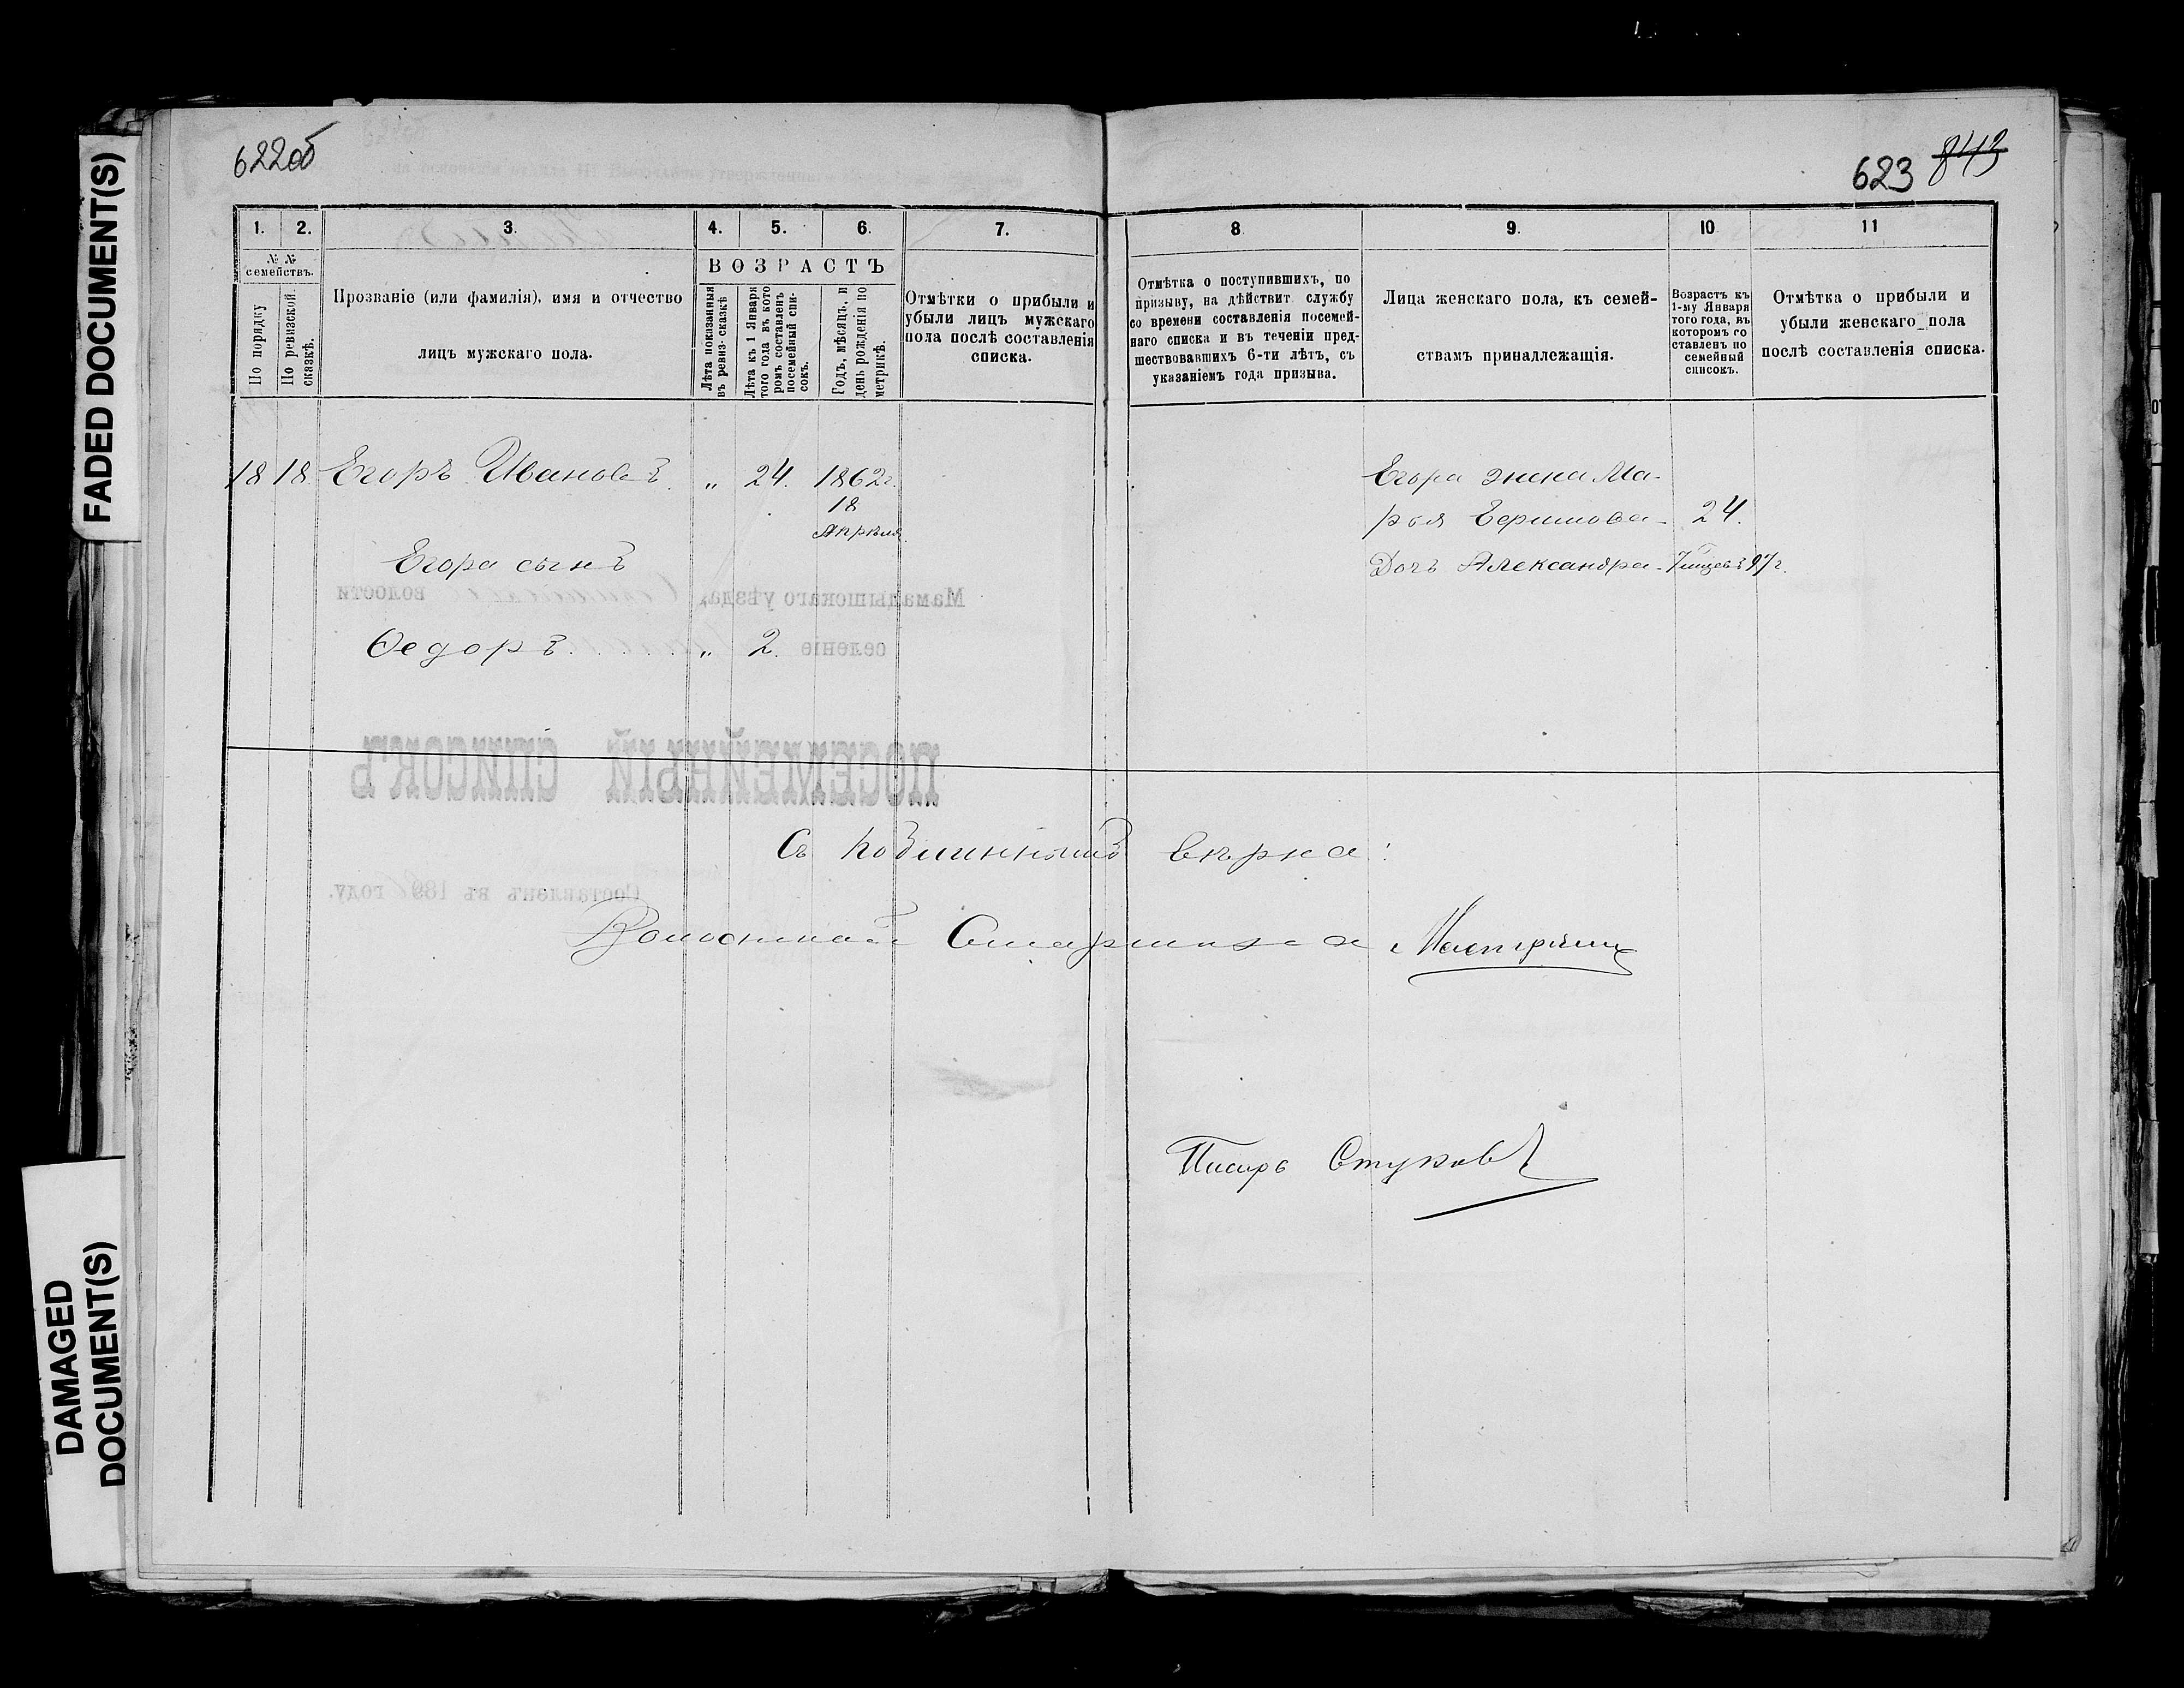 FADED DOCUMENT(S)
DAMAGED
DOCUMENT(S)
622об
1.
2.
3.
4.
5.
6.
7.
№ №
семействъ.
По порядку
По ревизской
сказкѣ.
Прозваніе (или фамилія), имя и отчество
лицъ мужскаго пола.
ВОЗРАСТЪ
Лѣта показанныя
въ ревиз. сказкѣ
Лѣта къ 1 Января
того года въ кото
ромъ составленъ
посемейный спи-
сокъ.
Годъ, мѣсяцъ, и
день рожденія по
метрикѣ.
Отмѣтки о прибыли и
убыли лицъ мужскаго
пола послѣ составленія
списка.
18 18 Егоръ Ивановъ „ 24. 1862г.
18
Апрѣля
Егора сынъ
Ѳедоръ. . . . . „ 2.
Мамадышскаго уѣзда, волости
селеніе
ПОСЕМЕЙНЫЙ СПИСОКЪ
Составленъ въ 189 году.
623 843
8
9.
10
11
Отмѣтка о поступившихъ, по
призыву, на дѣйствит службу
со времени составленія посемей-
наго списка и въ теченіи пред-
шествовавшихъ 6-ти лѣтъ, съ
указаніемъ года призыва.
Лица женскаго пола, къ семей-
ствамъ принадлежащія.
Возрастъ къ
1-му Января
того года, въ
которомъ со
ставленъ по
семейный
списокъ.
Отмѣтка о прибыли и
убыли женскаго пола
послѣ составленія списка.
Егора жена Ма-
рья Ефимова- 24.
Дочь Александра-
Съ подлиннымъ вѣрно:
Волостной Старшина
Писарь Стуковъ